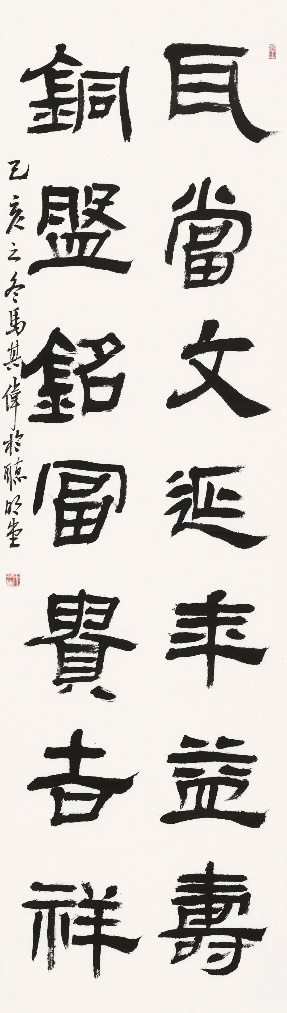 瓦當文延年益壽
銅盤銘富貴吉祥
己亥之冬馬其偉於聽堂